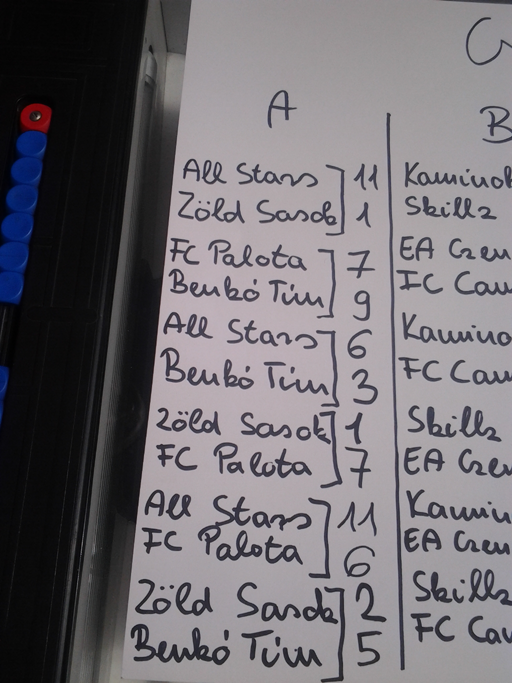 A B
All Stars 11 Kamino
Zöld Sasok 1 Skillz
FC Palota 7 EA
Benkó Tim 9 FC
All Stars 6 Kamino
Benkó Tim 3 FC
Zöld Sasok 1 Skillz
FC Palota 7 EA
All Stars 11
FC Palota 6 EA
Zöld Sasok 2 Skillz
Benkó Tim 5 FC